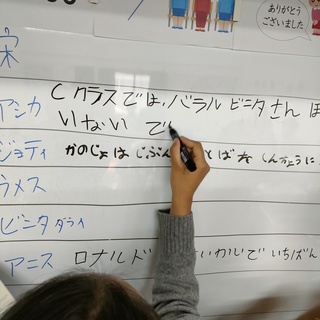 ありがとう
ございました
アシカ
Cクラスでは、バラル ビニタさん ほ
いない で
ジョティ
かのじょは じぶん
とば を しんちょうに
ラメス
ビニタ ダライ
アニス
ロナルド
せかいで いちばん